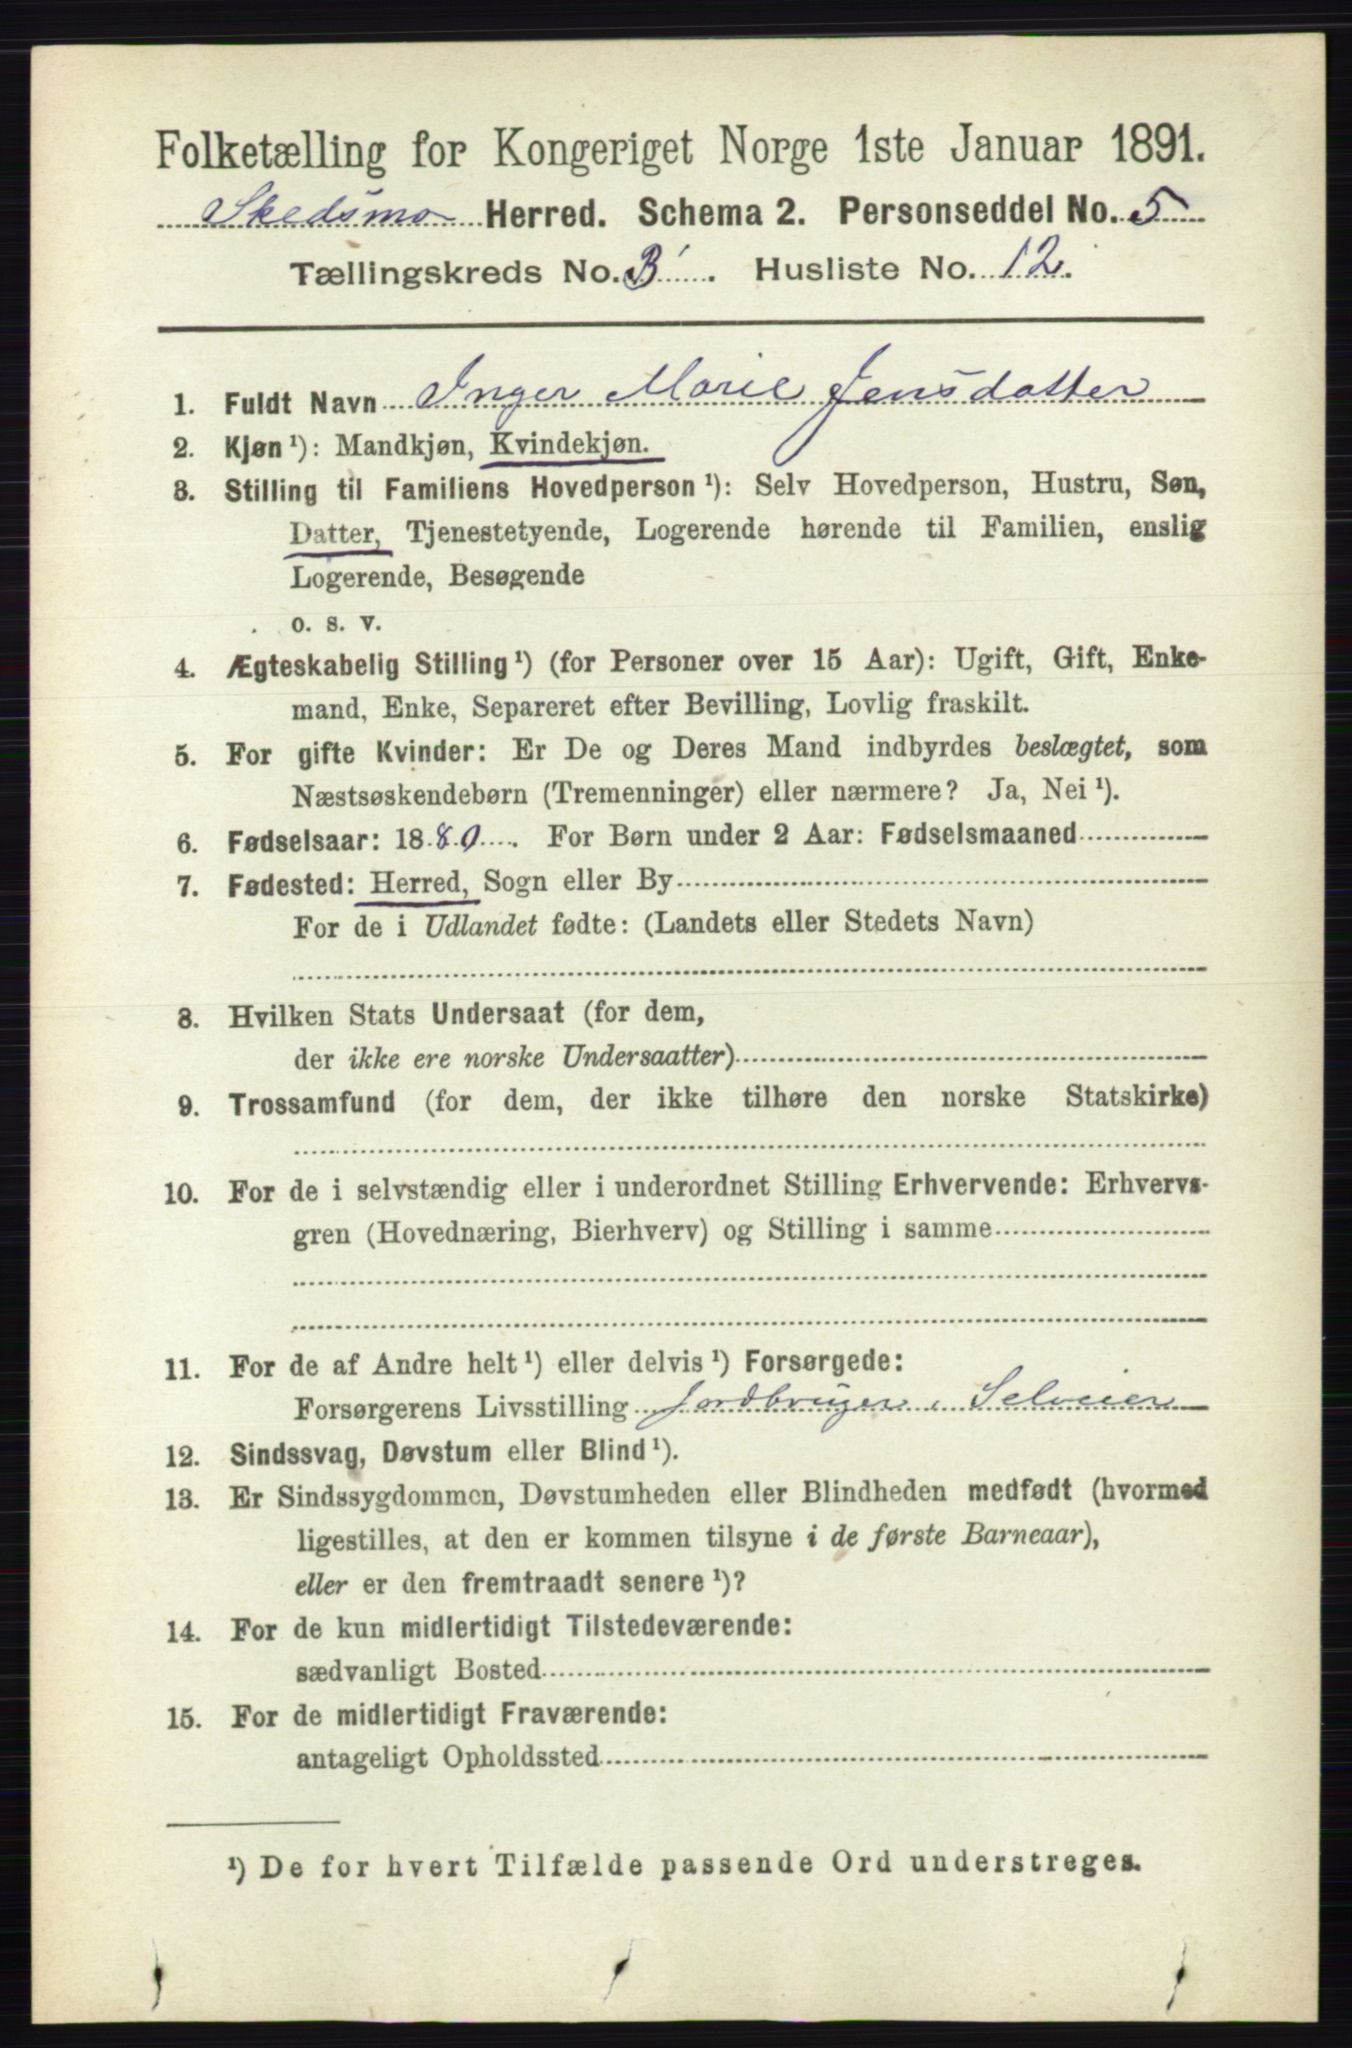 Folketælling for Kongeriget Norge 1ste Januar 1891.
Skedsmo Herred. Schema 2. Personseddel No. 5
Tællingskreds No. 3. Husliste No. 12.
1. Fuldt Navn Inger Marie Jensdatter
2. Kjøn ¹): Mandkjøn, Kvindekjøn.
3. Stilling til Familiens Hovedperson ¹): Selv Hovedperson, Hustru, Søn,
Datter, Tjenestetyende, Logerende hørende til Familien, enslig
Logerende, Besøgende
o. s. v.
4. Ægteskabelig Stilling ¹) (for Personer over 15 Aar): Ugift, Gift, Enke-
mand, Enke, Separeret efter Bevilling, Lovlig fraskilt.
5. For gifte Kvinder: Er De og Deres Mand indbyrdes beslægtet, som
Næstsøskendebørn (Tremenninger) eller nærmere? Ja, Nei ¹).
6. Fødselsaar: 1880. For Børn under 2 Aar: Fødselsmaaned
7. Fødested: Herred, Sogn eller By
For de i Udlandet fødte: (Landets eller Stedets Navn)
8. Hvilken Stats Undersaat (for dem,
der ikke ere norske Undersaatter)
9. Trossamfund (for dem, der ikke tilhøre den norske Statskirke)
10. For de i selvstændig eller i underordnet Stilling Erhvervende: Erhvervs-
gren (Hovednæring, Bierhverv) og Stilling i samme
11. For de af Andre helt ¹) eller delvis ¹) Forsørgede:
Forsørgerens Livsstilling Jordbruger, Selveier
12. Sindssvag, Døvstum eller Blind ¹).
13. Er Sindssygdommen, Døvstumheden eller Blindheden medfødt (hvormed
ligestilles, at den er kommen tilsyne i de første Barneaar),
eller er den fremtraadt senere ¹)?
14. For de kun midlertidigt Tilstedeværende:
sædvanligt Bosted
15. For de midlertidigt Fraværende:
antageligt Opholdssted
¹) De for hvert Tilfælde passende Ord understreges.